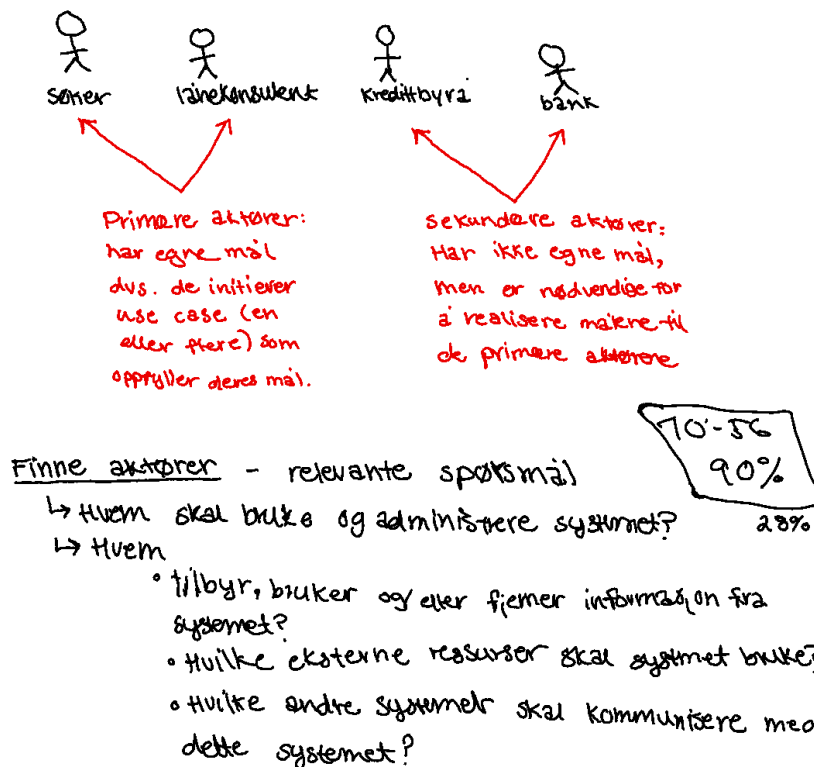 søker lånekonsulent kredittbyrå bank
Primære aktører:
har egne mål
dvs. de initierer
use case (en
eller flere) som
oppfyller deres mål.
sekundære aktører:
Har ikke egne mål,
men er nødvendige for
å realisere målene til
de primære aktørene
70-56
90%
28%
Finne aktører - relevante spørsmål
↳ Hvem skal bruke og administrere systemet?
↳ Hvem
• tilbyr, bruker og/eller fjerner informasjon fra
systemet?
• Hvilke eksterne ressurser skal systmet bruke?
• Hvilke andre systemer skal kommunisere med
dette systemet?